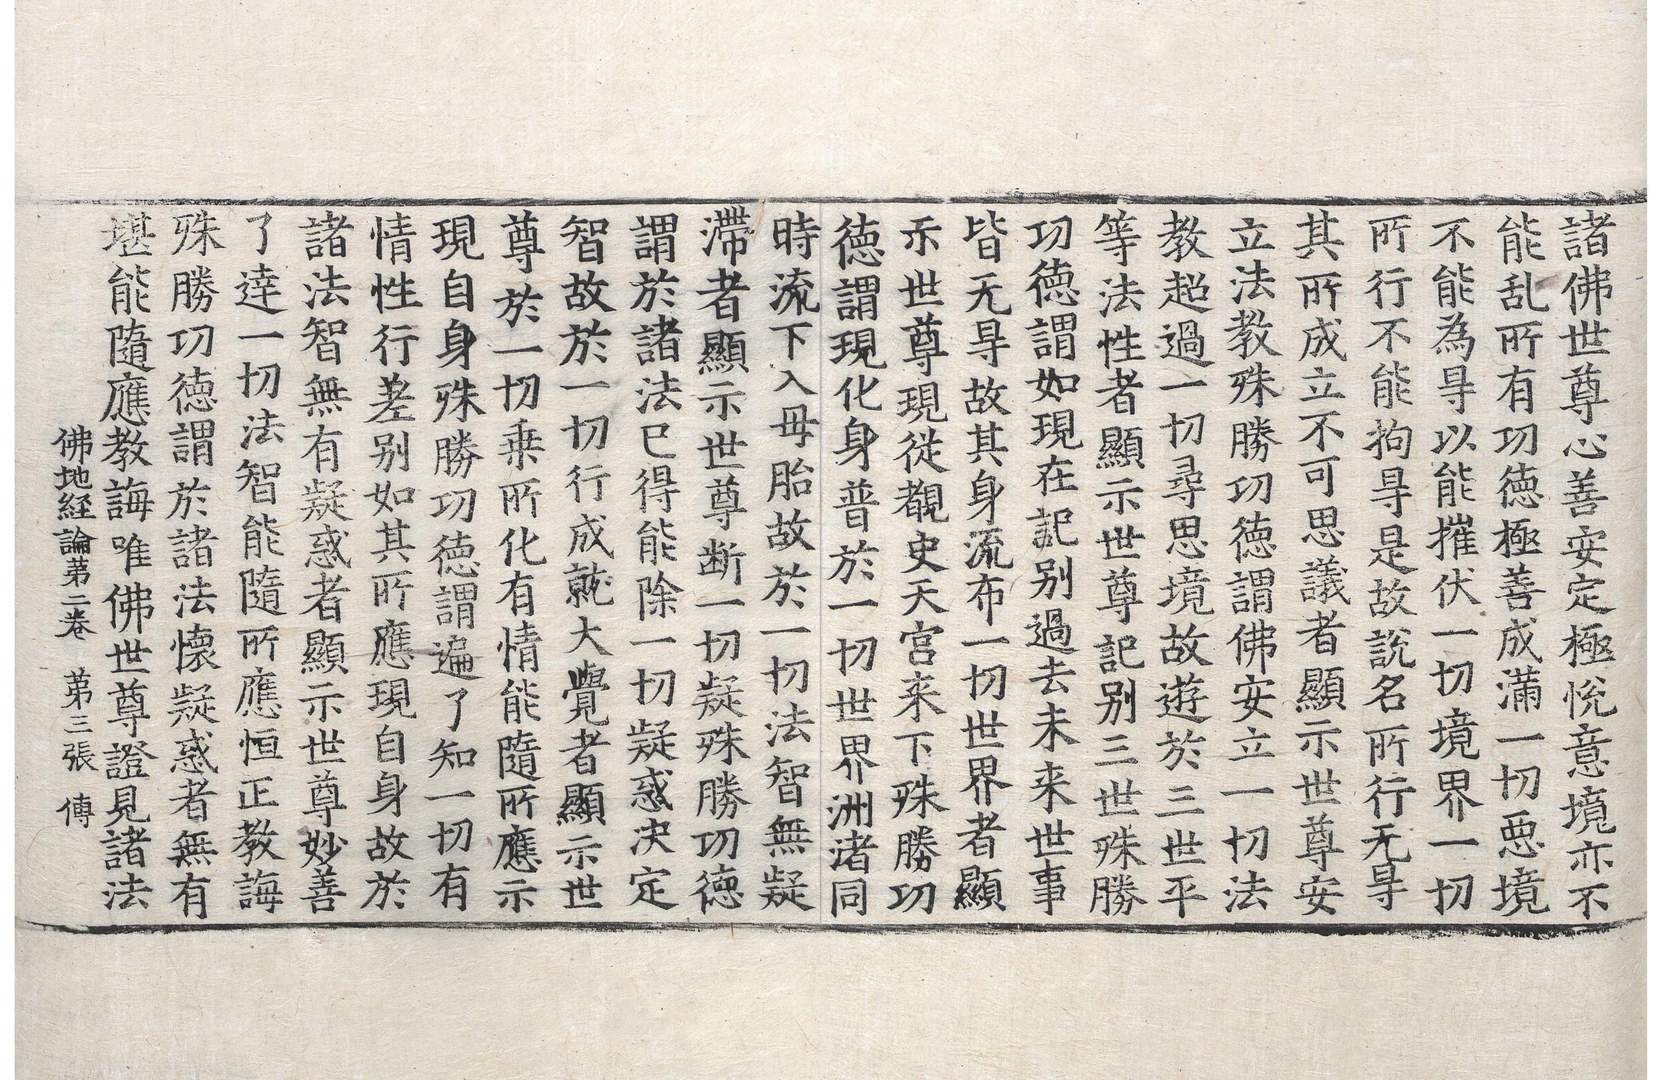 諸佛世尊心善安定極悅意境亦不
能乱所有功德極善成滿一切恶境
不能為㝵以能摧伏一切境界一切
所行不能拘㝵是故說名所行无㝵
其所成立不可思議者顯示世尊安
立法教殊勝功德謂佛安立一切法
教超過一切尋思境故遊於三世平
等法性者顯示世尊記别三世殊勝
功德謂如現在記别過去未来世事
皆无㝵故其身流布一切世界者顯
示世尊現從覩史天宮来下殊勝功
德謂現化身普於一切世界洲渚同
時流下入母胎故於一切法智無疑
滯者顯示世尊断一切疑殊勝功德
謂於諸法已得能除一切疑惑决定
智故於一切行成就大覺者顯示世
尊於一切乗所化有情能隨所應示
現自身殊勝功德謂遍了知一切有
情性行差别如其所應現自身故於
諸法智無有疑惑者顯示世尊妙善
了達一切法智能隨所應恒正教誨
殊勝功德謂於諸法懷疑惑者無有
堪能隨應教誨唯佛世尊證見諸法
佛地経論苐二卷 苐三張 傳